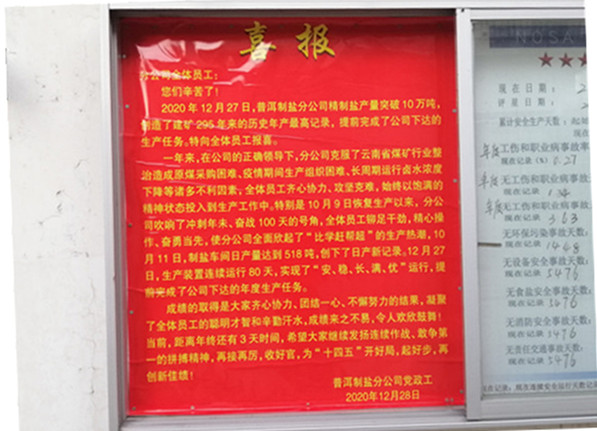 喜报
分公司全体员工：
您们辛苦了！
2020年12月27日，普洱制盐分公司精制盐产量突破10万吨，
创造了建矿295年来的历史年产最高记录，提前完成了公司下达的
生产任务。特向全体员工报喜。
一年来，在公司的正确领导下，分公司克服了云南省煤矿行业整
治造成原煤采购困难、疫情期间生产组织困难、长周期运行卤水浓度
下降等诸多不利因素，全体员工齐心协力、攻坚克难，始终以饱满的
精神状态投入到生产工作中。特别是10月9日恢复生产以来，分公
司吹响了冲刺年末、奋战100天的号角，全体员工铆足干劲，精心操
作、奋勇当先，使分公司全面欣起了“比学赶帮超”的生产热潮，10
月11日，制盐车间日产量达到518吨，创下了日产新记录。12月27
日，生产装置连续运行80天，实现了“安、稳、长、满、优”运行，提
前完成了公司下达的年度生产任务。
成绩的取得是大家齐心协力、团结一心、不懈努力的结果，凝聚
了全体员工的聪明才智和辛勤汗水，成绩来之不易，令人欢欣鼓舞！
当前，距离年终还有3天时间，希望大家继续发扬连续作战、敢争第
一的拼搏精神，再接再厉，收好官，为“十四五”开好局，起好步，再
创新佳绩！
普洱制盐分公司党政工
2020年12月28日
NOSA
★★★
现在日期：2
评星日期：2
累计安全生产天数：
年度工伤和职业病事故率
现在记录（%）0.27
年度无工伤和职业病事故
现在记录
年度无工伤和职业病事故
现在记录 363
无环保污染事故天数
现在记录 1448
无设备安全事故天数
现在记录 5476
无食盐安全事故天数
现在记录 5476
无消防安全事故天数：
现在记录 5476
无责任交通事故天数
现在记录 5476